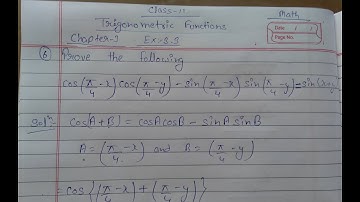 Class-11
Math
Date / /
Page No.
Trigonometric Functions
Chapter-3 Ex-3.3
⑥ Prove the following
cos(π/4 - x) cos(π/4 - y) - sin(π/4 - x) sin(π/4 - y) = sin(x+y)
Solⁿ. cos(A+B) = cosA cosB - sinA sinB
A = (π/4 - x) and B = (π/4 - y)
= cos{(π/4 - x) + (π/4 - y)}